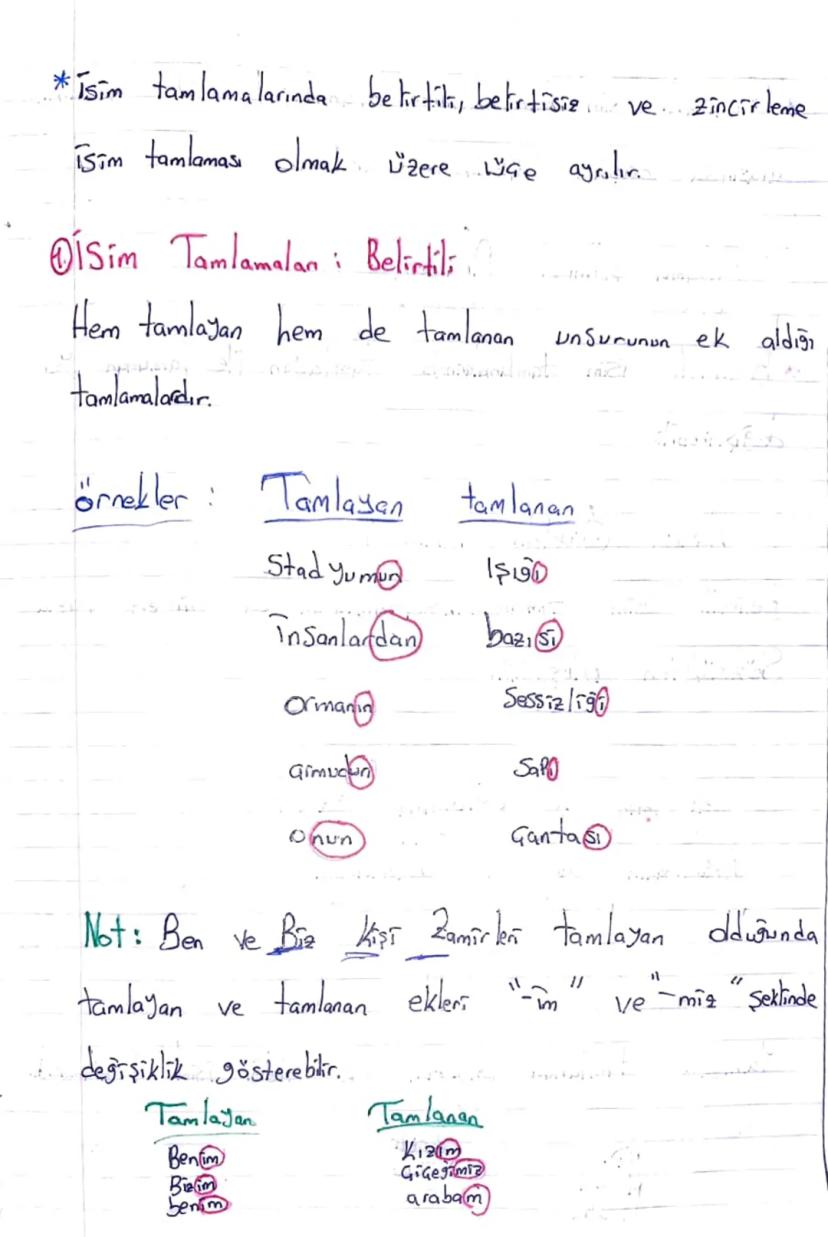 * İsim tamlamalarında belirtili, belirtisiz ve zincirleme
isim tamlaması olmak üzere üçe ayrılır.
1. İsim Tamlamaları : Belirtili
Hem tamlayan hem de tamlanan unsurunun ek aldığı
tamlamalardır.
örnekler : Tamlayan tamlanan
Stadyumun Işığı
insanlardan bazısı
Ormanın Sessizliği
Sapı
Onun Çantası
Not: Ben ve Biz Kişi Zamirleri tamlayan olduğunda
tamlayan ve tamlanan ekleri "-im" ve "-miz" şeklinde
değişiklik gösterebilir.
Tamlayan Tamlanan
Benim Kızım
Bizim Çiçeğimiz
benim arabam